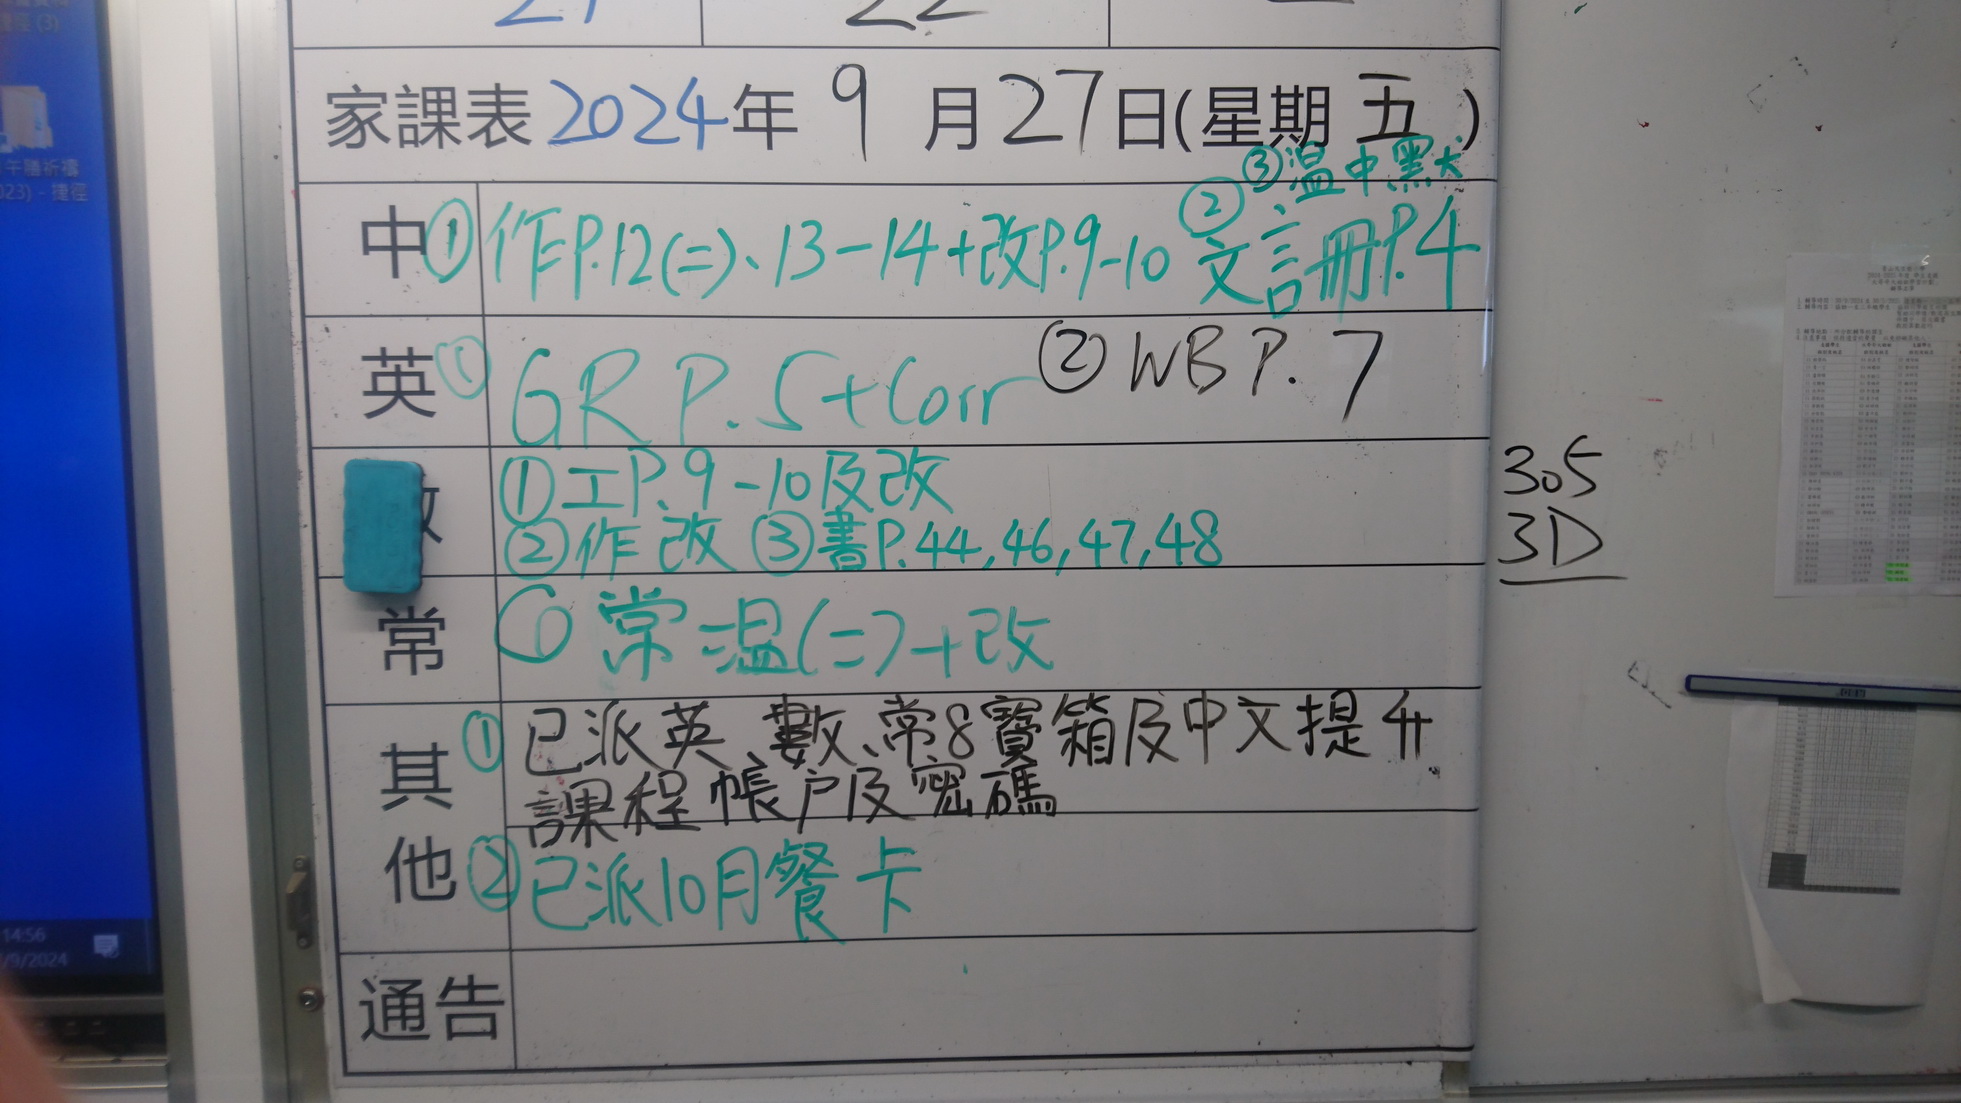 家課表2024年 9 月27日(星期 五 )
③溫中黑大
中 ①作P.12(二)、13-14+改P.9-10 ②文言冊P.4
英 ① GR P.5+Corr ② WB P.7
①工P.9-10及改
②作 改 ③書P.44,46,47,48
305
3D
常 ① 常溫(二)+改
其他
①已派英、數、常8寶箱及中文提升
課程帳户及密碼
②已派10月餐卡
通告
午膳祈禱
023) - 捷徑
14:56
/9/2024